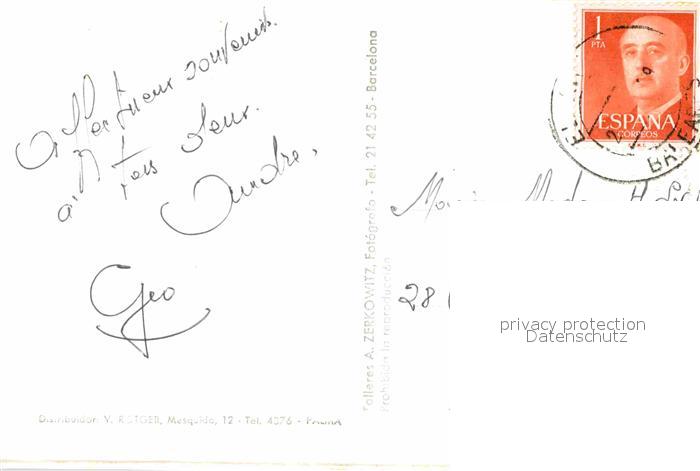 Affectueux souvenirs
à tous deux.
Andrée,
Geo
Distribuidor: V. ROTGER, Mesquida, 12 - Tel. 4076 - PALMA
Talleres A. ZERKOWITZ, Fotógrafo - Tel. 21 42 55 - Barcelona
Prohibida la reproducción
1
PTA
ESPAÑA
CORREOS
BALEARES
28
privacy protection
Datenschutz